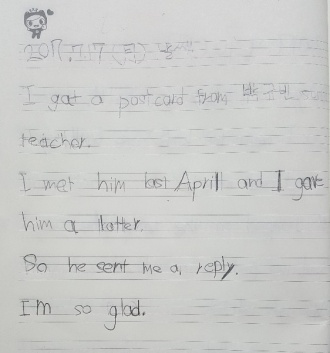 2017.7.17 (월)
I got a postcard from 박규빈
teacher.
I met him last April and I gave
him a latter.
So he sent me a reply.
I'm so glad.